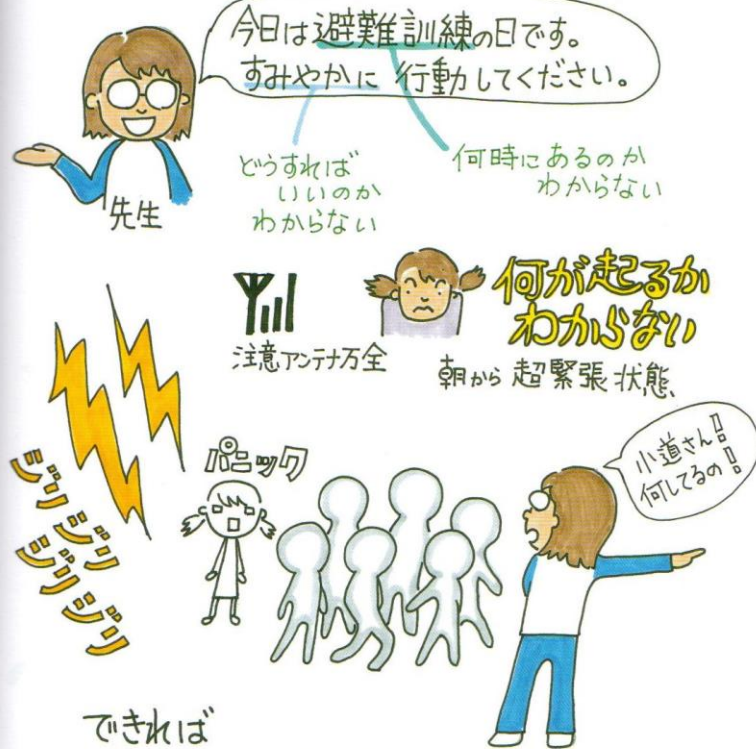 今日は避難訓練の日です。
すみやかに 行動してください。
どうすれば
いいのか
わからない
何時にあるのか
わからない
先生
注意アンテナ万全
何が起るか
わからない
朝から 超緊張状態
ジリジリ
ジリジリ
パニック
小道さん!!
何してるの!!
できれば